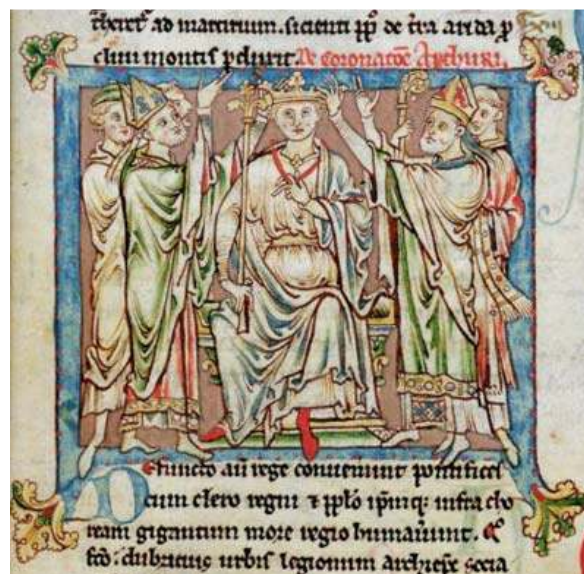 heret ad martirium. sicienti pp̄lo de t̄ra arida p̄
montis p̄duxit. De coronac̄oe Arthuri.
Defuncto aū rege conuenerunt pontifices
cum clero regni ⁊ pp̄lo ip̄mq; infra cho
ream gigantum more regio humauerunt.
dubricius urbis legionum archiep̄c socia